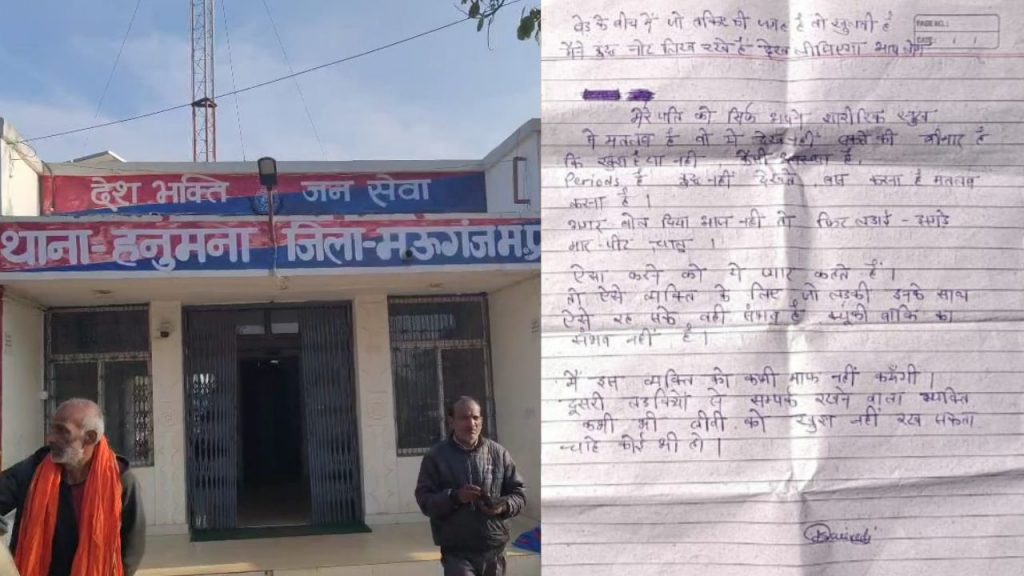 देश भक्ति जन सेवा
थाना=हनुमना जिला-मऊगंज म.प्र
PAGE NO.:
DATE: / /
बेड के बीच में जो की जगह है वो खुलती है
मैंने कुछ नोट लिख रखे हैं देख लीजिएगा आप लोग
मेरे पति को सिर्फ अपने शारीरिक सुख
से मतलब है वो ये नहीं की बीमार है
कि खुश है या नहीं , कैसी है,
Periods है कुछ नहीं देखते , बस करना है मतलब
करना है ।
अगर बोल दिया आज नहीं तो फिर लडाई - झगड़े
मार-पीट चालू ।
ऐसा करने को ये प्यार कहते हैं ।
तो ऐसे व्यक्ति के लिए जो लडकी इनके साथ
ऐसे रह सके वही संभव है क्यूंकी बाकि का
संभव नहीं है ।
मैं इस व्यक्ति को कभी माफ नहीं करूँगी ।
दूसरी लडकियों से सम्पर्क रखने वाला व्यक्ति
कभी भी बीवी को खुश नहीं रख सकता
चाहे कोई भी हो ।
Dwivedi